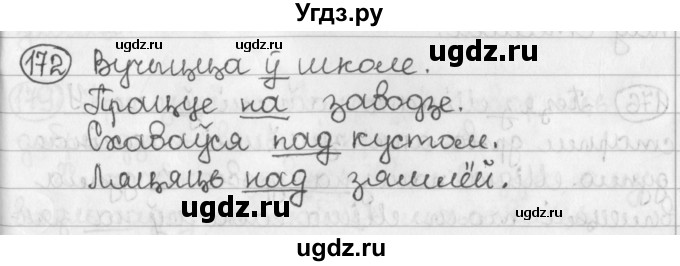 Угдз.ру
172 Вучыцца ў школе.
gdz.ru gdz.ru
Працуе на заводзе.
Схаваўся пад кустом.
Ляцяць над зямлёй.
gdz.ru gdz.ru
ugdz.ru ugdz.ru
ugdz.ru